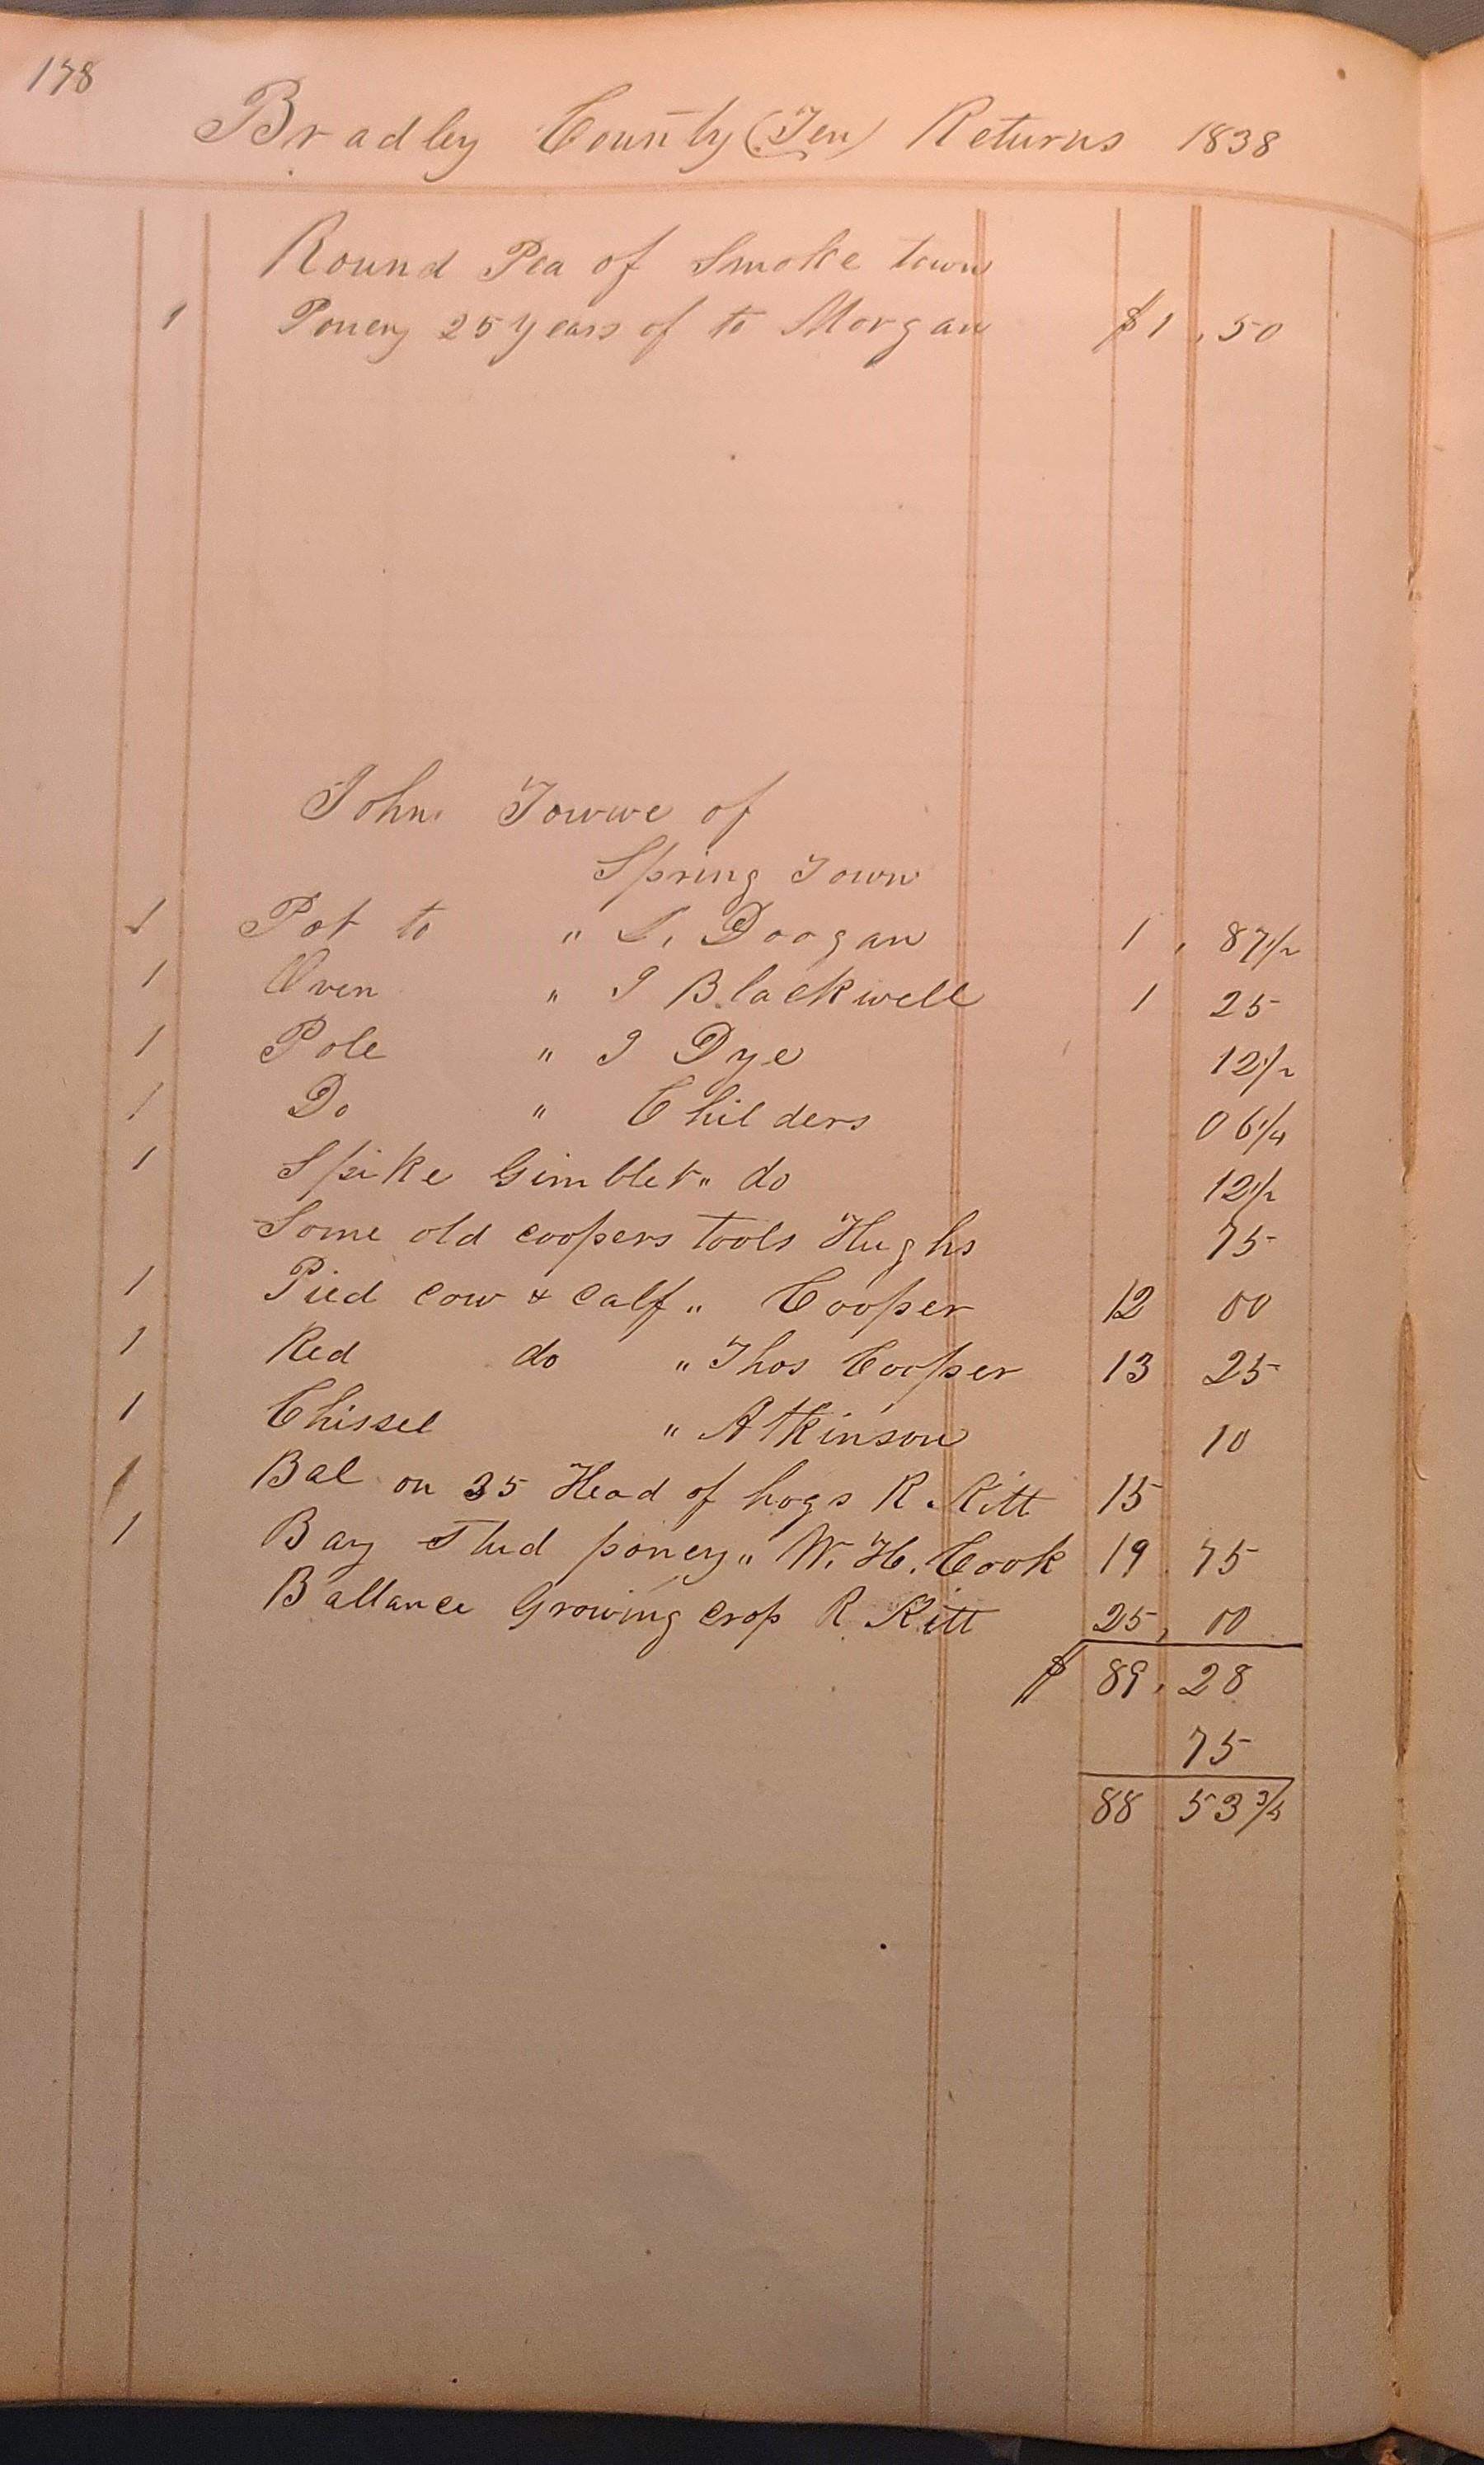 178
Bradley County (Ten) Returns 1838
Round Pea of Smoke town
1 Poney 25 years of to Morgan $1.50
John Towwe of
Spring Town
1 Pot to " S. Doogan 1.87 1/2
1 Oven " J Blackwell 1 25
1 Pole " J Dye 12 1/2
1 Do " Childers 06 1/4
1 Spike Gimblet " do 12 1/2
Some old coopers tools Hughs 75
1 Pied Cow & Calf " Cooper 12 00
1 Red do " Thos Cooper 13 25
1 Chissel " Atkinson 10
1 Bal on 35 Head of hogs R. Kitt 15
1 Bay Stud poney " W. H. Cook 19.75
Ballance Growing crop R. Kitt 25,00
$ 89.28
75
88 53 3/4